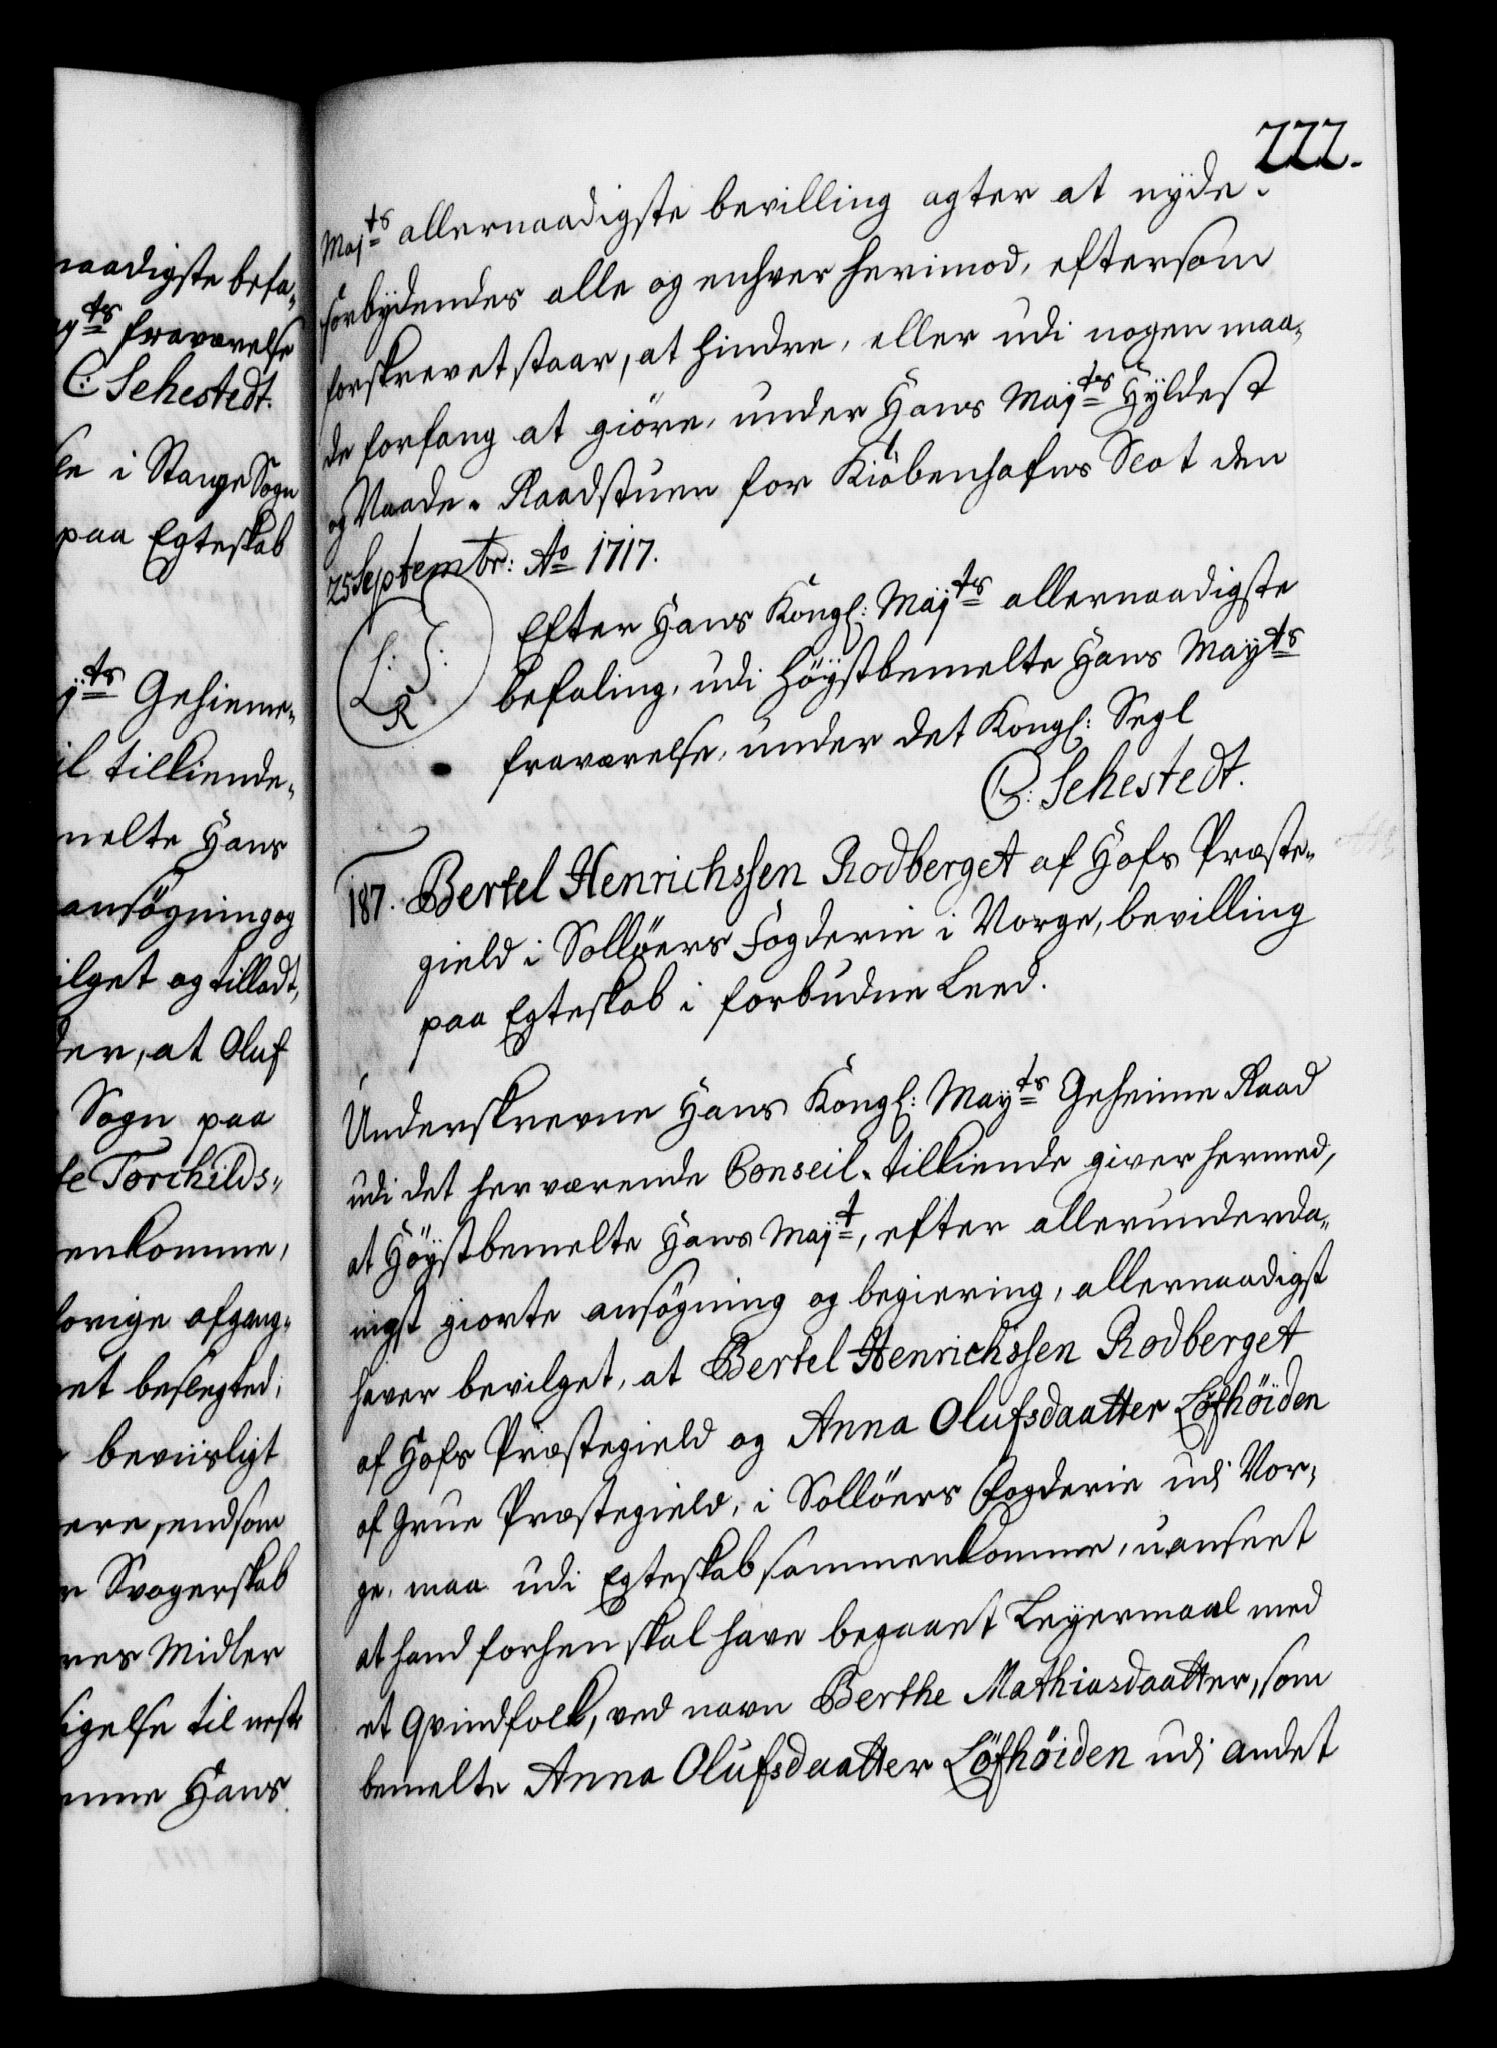 naadigste befa-
ayts fraværelse
C: Sehestedt.
le i Stange Sogn
paa Egteskab
yts Geheime-
il tilkiende-
melte Hans
ansøgning og
ilget og tilladt,
der, at Oluf
Sogn paa
te Torchilds-
enkomme,
forige afgang-
et beslegted;
beviisligt
ere, endsom
n Svogerskab
res Midler
sigelse til neste
mme Hans
222.
Majts allernaadigste bevilling agter at nyde.
Forbydendes alle og enhver herimod, eftersom
forskrevet staar, at hindre, eller udi nogen maa-
de forfang at giöre, under Hans Majts Hyldest
og Naade. Raadstuen for Kiöbenhafns Slot den
25 Septembr: Ao 1717.
L: S:
R
Efter Hans Kongl: Majts allernaadigste
befaling, udi Höystbemelte Hans Mayts
fraværelse, under det Kongl: Segl
C: Sehestedt.
187. Bertel Henrichssen Rodberget af Hofs Præste-
gield i Sollöers Fogderie i Norge, bevilling
paa Egteskab i forbudne Leed.
Underskrevne Hans Kongl: Mayts Geheime Raad
udi det herværende Conseil tilkiende giver hermed,
at Höystbemelte Hans Majt, efter allerunderda-
nigst giorte ansögning og begiering, allernaadigst
haver bevilget, at Bertel Henrichssen Rodberget
af Hofs Præstegield og Anna Olufsdaatter Löfhöiden
af Grue Præstegield, i Sollöers Fogderie udi Nor-
ge, maa udi Egteskab sammenkomme, uanseet
at hand forhen skal have begaaet Leyermaal med
et Qvindfolk, ved navn Berthe Mathiasdaatter, som
bemelte Anna Olufsdaatter Löfhöiden udi andet